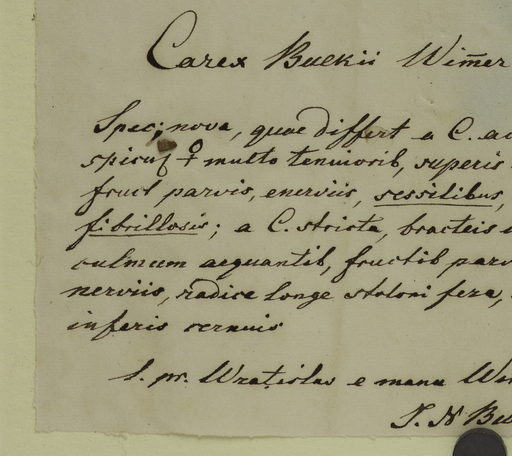 Carex Buekii Wim̄er
Spec; nova, quae differt a C. ac
spicul ♀ multo tenuiorib, superis
fruct parvis, enerviis, sessilibus,
fibrillosis; a C. stricta, bracteis
culmum aequantib, fructib parv
nerviis, radice longe stolonifera,
inferis cernuis
l. pr. Wratislav e manu Wi
J. N Bu